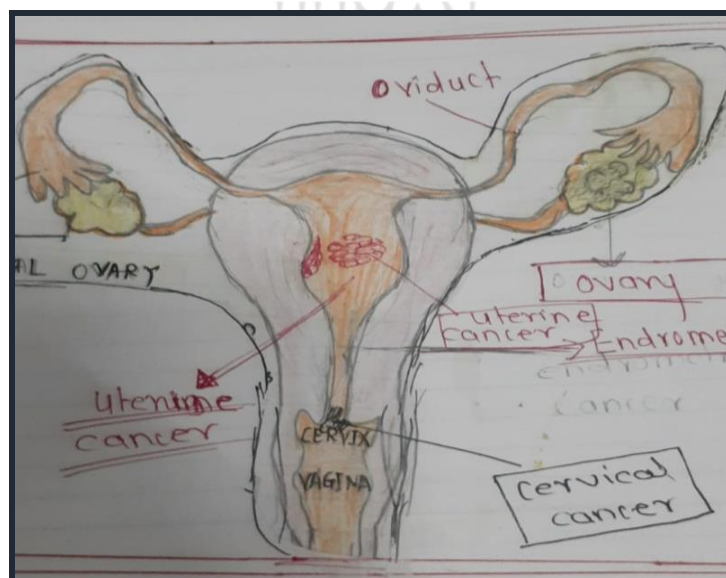 HUMAN
Oviduct
AL OVARY
ovary
uterine
cancer
Endrome
endrome
cancer
utenime
cancer
CERVIX
VAGINA
cervical
cancer